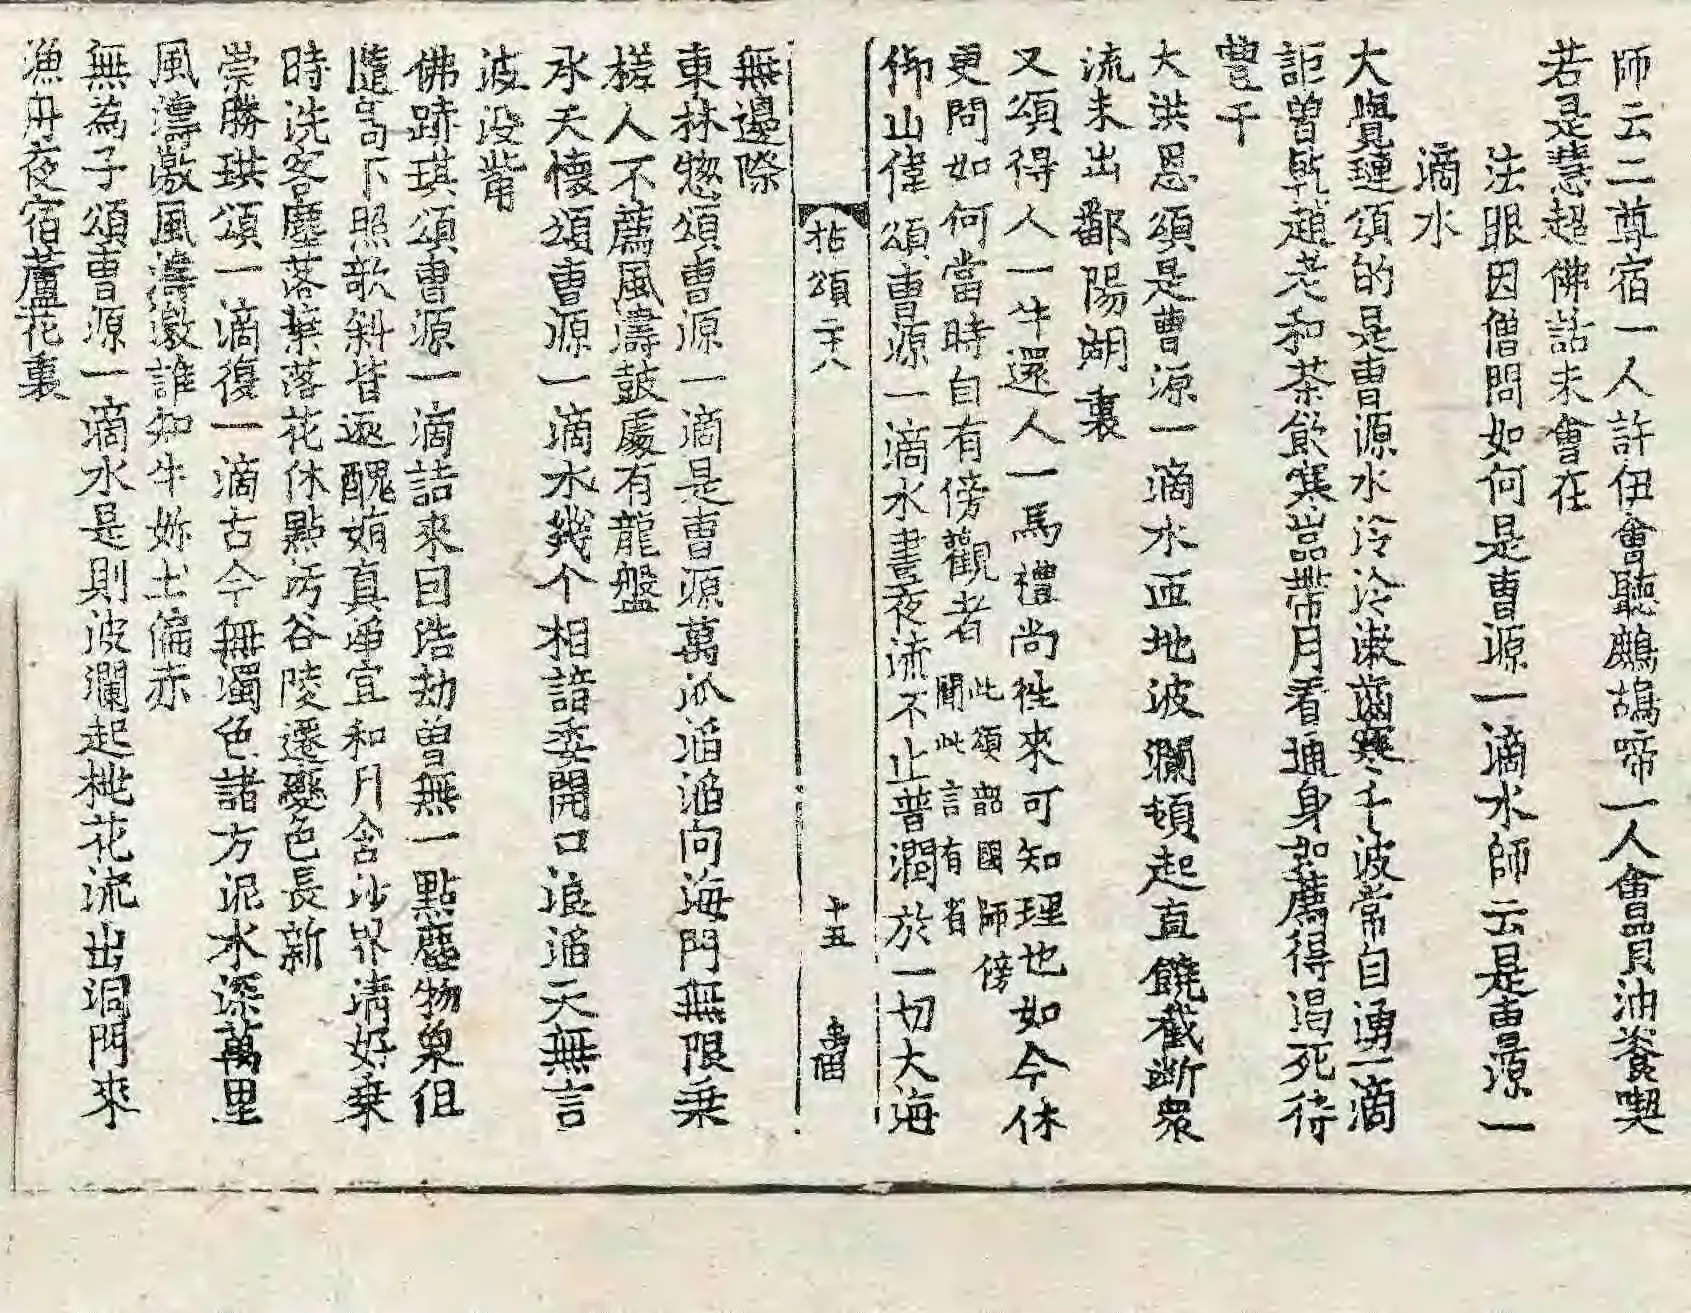 師云二尊宿一人許伊會聽鷓鴣啼一人會㗖油糍喫
若是慧超佛話未會在
法眼因僧問如何是曹源一滴水師云是曹源一
滴水
大覺璉頌的是曹源水泠泠漱齒寒千波常自湧一滴
詎曾乾趙老和茶飲寒嵓帶月看通身如薦得渴死待
豊干
大洪恩頌是曹源一滴水匝地波瀾頓起直饒截斷衆
流未出鄱陽湖裏
又頌得人一牛還人一馬禮尚往來可知理也如今休
更問如何當時自有傍觀者此頌韶國師傍
聞此言有省
仰山偉頌曹源一滴水晝夜流不止普潤於一切大海
拈頌二十八 十五
無邊際
東林惣頌曹源一滴是曹源萬派滔滔向海門無限乗
槎人不薦風濤皷處有龍盤
水天懷頌曹源一滴水幾个相諳委開口浪滔天無言
波没觜
佛跡琪頌曹源一滴詰來自浩劫曾無一點塵物象但
隨高下照欹斜皆逐醜妍真爭宜和月含沙界淸好乗
時洗客塵落葉落花休點汚谷陵遷變色長新
崇勝珙頌一滴復一滴古今無濁色諸方泥水深萬里
風濤激風濤激誰知牛妳土偏赤
無為子頌曹源一滴水是則波瀾起桃花流出洞門來
漁舟夜宿蘆花裏